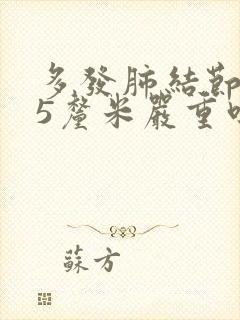 多發肺結節
5釐米嚴重
蘇方